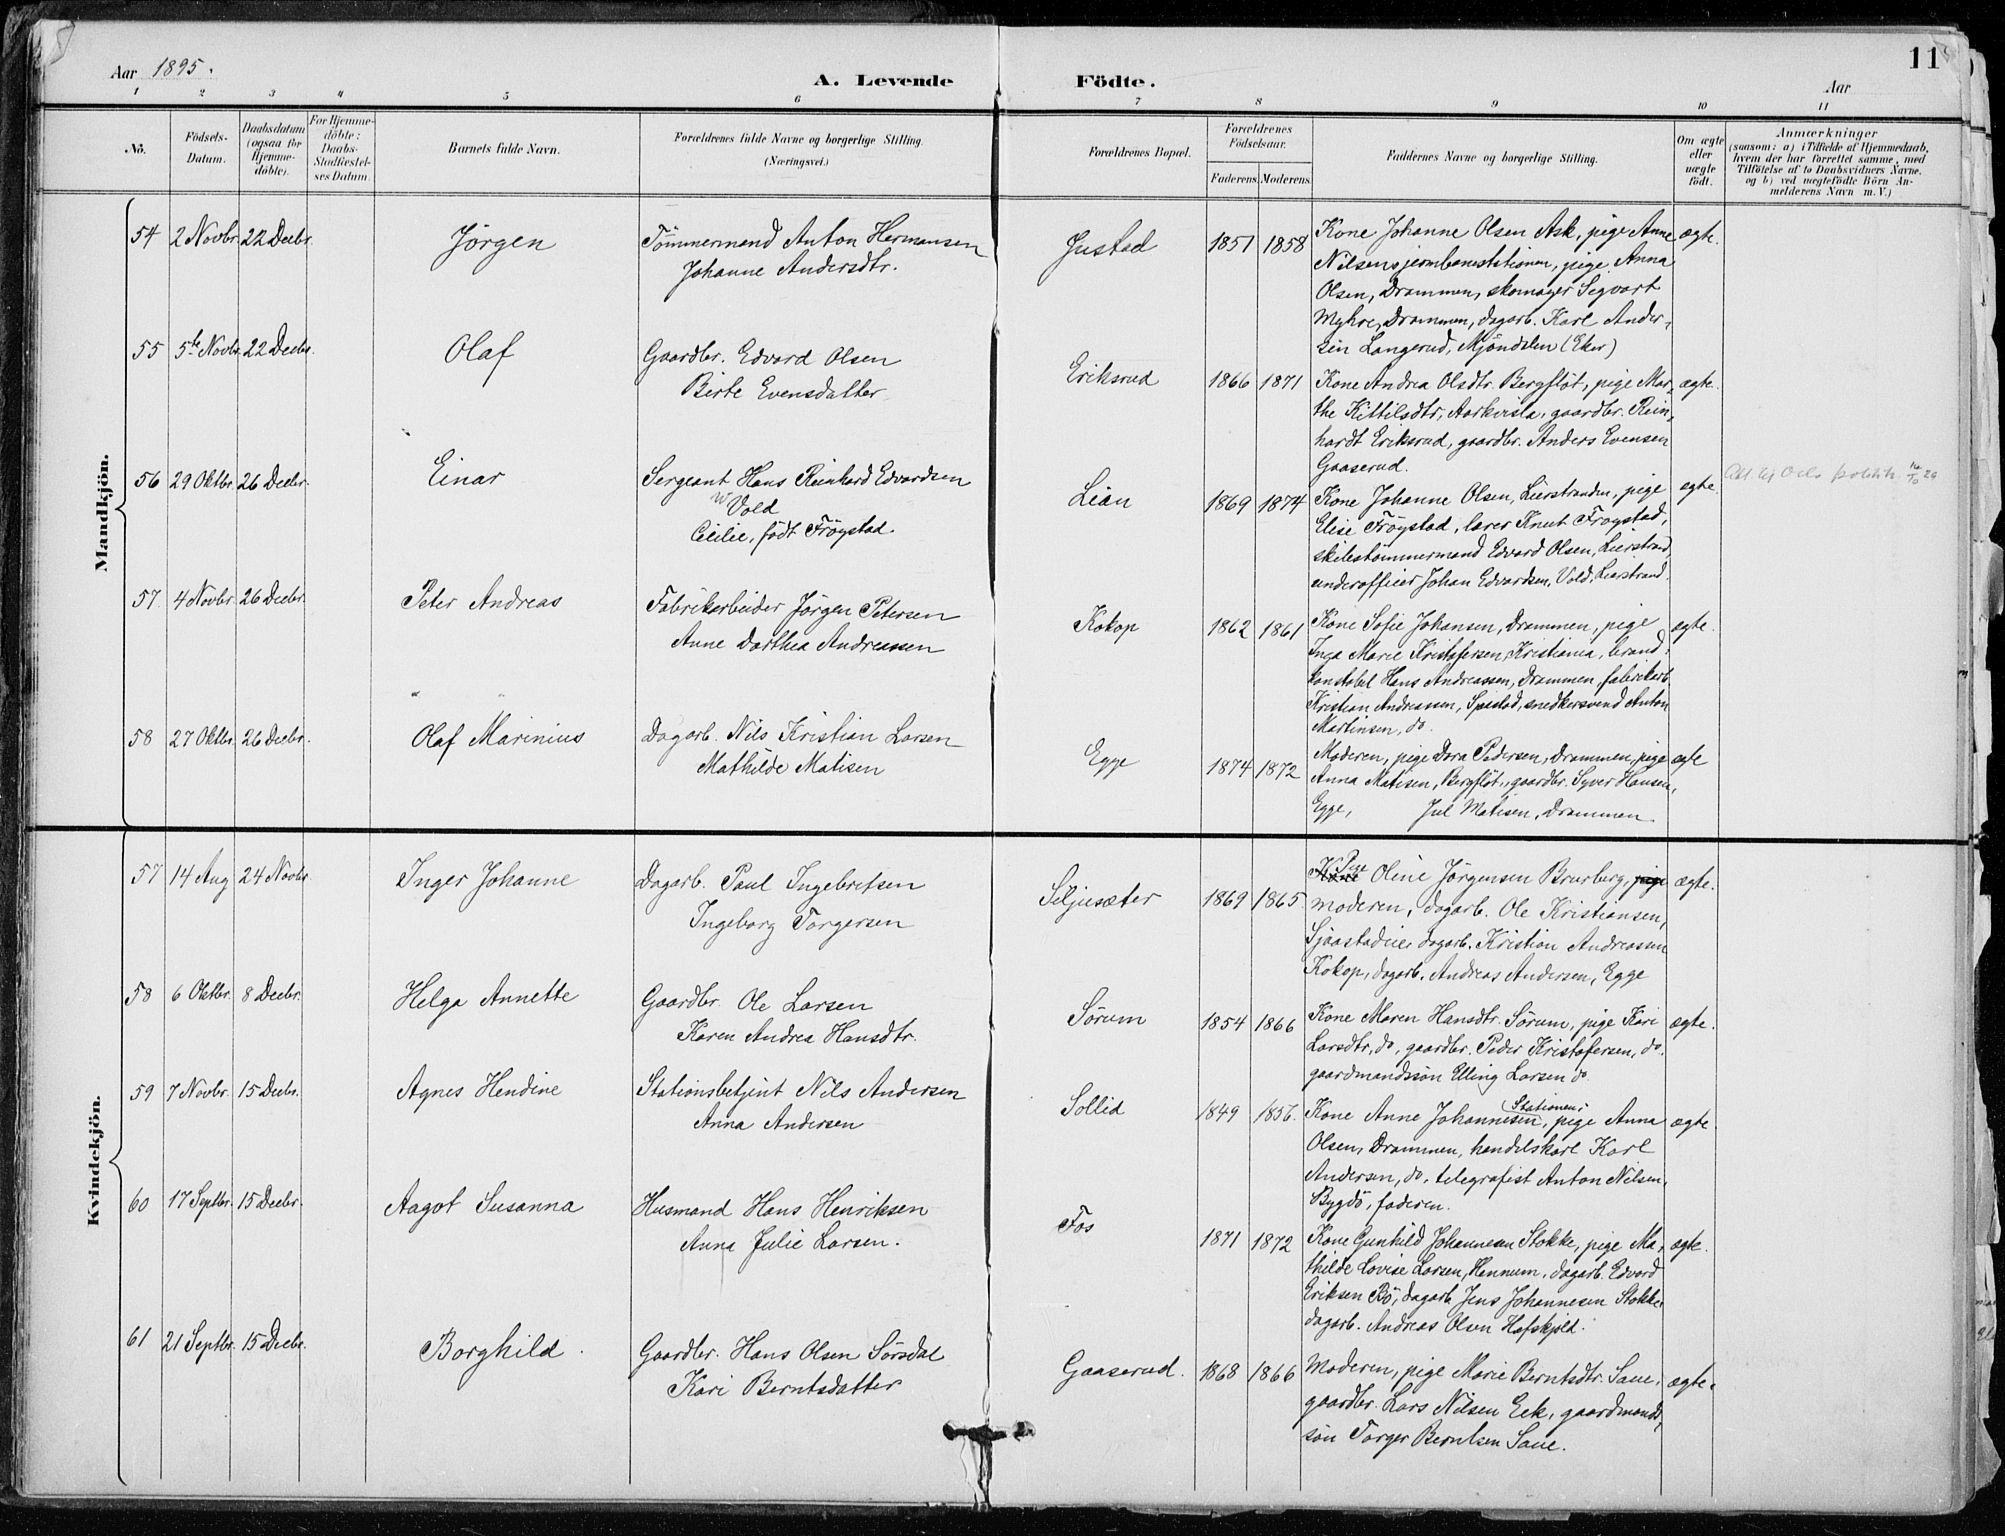 11
Aar 1895.
A. Levende Födte.
Aar
1 2 3 4 5 6 7 8 9 10 11
No.
Födsels-Datum.
Daabsdatum (ogsaa for Hjemmedöbte).
For Hjemmedöbte: Daabs-Stadfæstelses Datum.
Barnets fulde Navn.
Forældrenes fulde Navne og borgerlige Stilling. (Næringsvei.)
Forældrenes Bopæl.
Forældrenes Födselsaar.
Faderens. Moderens.
Faddernes Navne og borgerlige Stilling.
Om ægte eller uægte födt.
Anmærkninger
(saasom: a) i Tilfælde af Hjemmedaab,
hvem der har forrettet samme, med
Tilföielse af to Daabsvidners Navne,
og b) ved uægtefödte Börn An-
melderens Navn m. V.)
Mandkjön.
54 2 Novbr. 22 Decbr. Jörgen
Tömmermand Anton Hermansen
Johanne Andersdtr.
Justad 1851 1858
Kone Johanne Olsen Ask, pige Anne ægte.
Nilsen, jernbanestationen, pige Anna
Olsen, Drammen, skomager Segvart
Myhre, Drammen, dagarb. Karl Ander-
sen Langerud, Mjöndalen (Eker)
55 5te Novbr. 22 Decbr. Olaf
Gaardbr. Edvard Olsen
Birte Evensdatter
Eriksrud 1866 1871
Kone Andrea Olsdtr. Bergflöt, pige Mar- ægte.
the Kittilsdtr. Aarkvisla, gaardbr. Rein-
hardt Eriksrud, gaardbr. Anders Evensen
Gaaserud.
56 29 Oktbr. 26 Decbr. Einar
Sergeant Hans Reinhard Edvardsen
Vold
Cecilie, född Fröystad.
Lian 1869 1874
Kone Johanne Olsen, Lierstranden, pige ægte
Elise Fröystad, lærer Knut Froystad,
skibstömmermand Edvard Olsen, Lierstrand,
underofficer Johan Edvardsen, Vold, Lierstrand.
57. 4 Novbr. 26 Decbr. Peter Andreas
Fabrikarbeider Jörgen Petersen
Anne Dorthea Andreassen
Kokop 1862 1861
Kone Sofie Johansen, Drammen, pige ægte.
Inga Marie Kristofersen, Kristiania, brand-
konstabel Hans Andreassen, Drammen, fabrikarb.
Kristian Andreassen, snedkersvend Anton
Martinsen, do.
58 27 Oktbr. 26 Decbr. Olaf Marinius
Dagarb. Nils Kristian Larsen
Mathilde Matisen
Egge 1874 1872
Moderen, pige Dora Pedersen, Drammen, pige ægte
Anna Matisen, Bergflöt, gaardbr. Syver Hansen,
Egge, Jul Matisen, Drammen.
Kvindekjön.
57 14 Aug 24 Novbr. Inger Johanne
Dagarb. Paul Ingebretsen
Ingeborg Torgersen
Seljusæter 1869 1865
Oline Jörgensen Brurberg, pige ægte.
moderen, dagarb. Ole Kristiansen,
Sjaastadeie, dagarb. Kristian Andreassen
Kokop, dagarb. Andreas Andersen, Egge
58 6 Oktbr. 8 Decbr. Helga Annette
Gaardbr. Ole Larsen
Karen Andrea Hansdtr.
Sörum 1854 1866
Kone Maren Hansdtr. Sörum, pige Kari ægte.
Larsdtr, do, gaardbr. Peder Kristofersen, do.
gaardmandssön Elling Larsen do.
59 7 Novbr. 15 Decbr. Agnes Hendine
Stationsbetjent Nils Andersen
Anna Andersen
Sollid 1849 1856.
Kone Anne Johannesen, Stationen, pige Anna ægte.
Olsen, Drammen, handelskarl Karl
Andersen, do, telegrafist Anton Nilsen,
Bygdö, faderen.
60 17 Septbr. 15 Decbr. Aagot Susanna
Husmand Hans Henriksen
Anna Julie Larsen.
Fos 1871 1872
Kone Gunhild Johannesen Stokke, pige Ma- ægte.
thilde Lovise Larsen, Hennum, dagarb. Edvard
Eriksen Bö, dagarb. Jens Johannesen Stokke,
dagarb. Andreas Olsen Hofskjold.
61 21 Septbr. 15 Decbr. Borghild.
Gaardbr. Hans Olsen Sörsdal
Kari Berntsdatter
Gaaserud. 1868 1866
Moderen, pige Marie Berntsdtr. Saue, ægte.
gaardbr. Lars Nilsen Eek, gaardmands-
sön Torger Berntsen Saue.